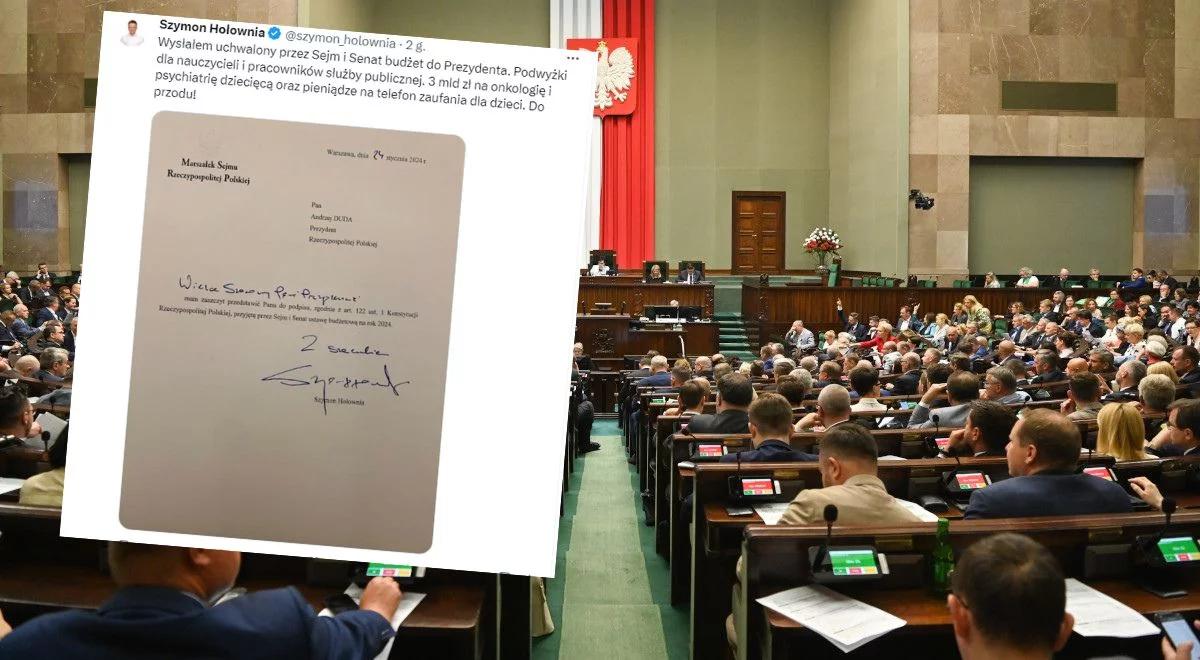 Szymon Holownia @szymon_holownia · 2 g.
Wysłałem uchwalony przez Sejm i Senat budżet do Prezydenta. Podwyżki
dla nauczycieli i pracowników służby publicznej. 3 mld zł na onkologię i
psychiatrię dziecięcą oraz pieniądze na telefon zaufania dla dzieci. Do
przodu!
Warszawa, dnia 24 stycznia 2024 r.
Marszałek Sejmu
Rzeczypospolitej Polskiej
Pan
Andrzej DUDA
Prezydent
Rzeczypospolitej Polskiej
Wielce Szanowny Panie Prezydencie
mam zaszczyt przedstawić Panu do podpisu, zgodnie z art. 122 ust. 1 Konstytucji
Rzeczypospolitej Polskiej, przyjętą przez Sejm i Senat ustawę budżetową na rok 2024.
Z szacunkiem
Szymon Hołownia